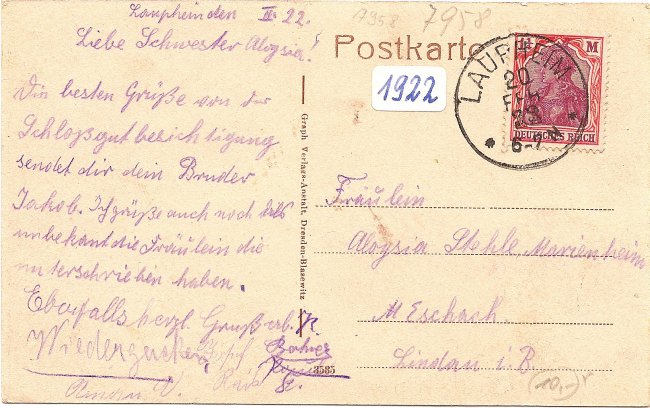 Laupheim den II. 22.
Liebe Schwester Aloysia!
Die besten Grüße von der
Schloßgutbesichtigung
sendet dir dein Bruder
Jakob. Ich grüße auch noch
unbekant die Fräulein die
unterschrieben haben.
Ebenfalls herzl. Gruß
7958
7958
Postkarte
1922
LAUPHEIM
20
FEB
6-7
M
DEUTSCHES REICH
Graph. Verlags-Anstalt, Dresden-Blasewitz
Fräulein
Aloysia Stehle Marienheim
Eschach
Lindau i. B
8585
10,-